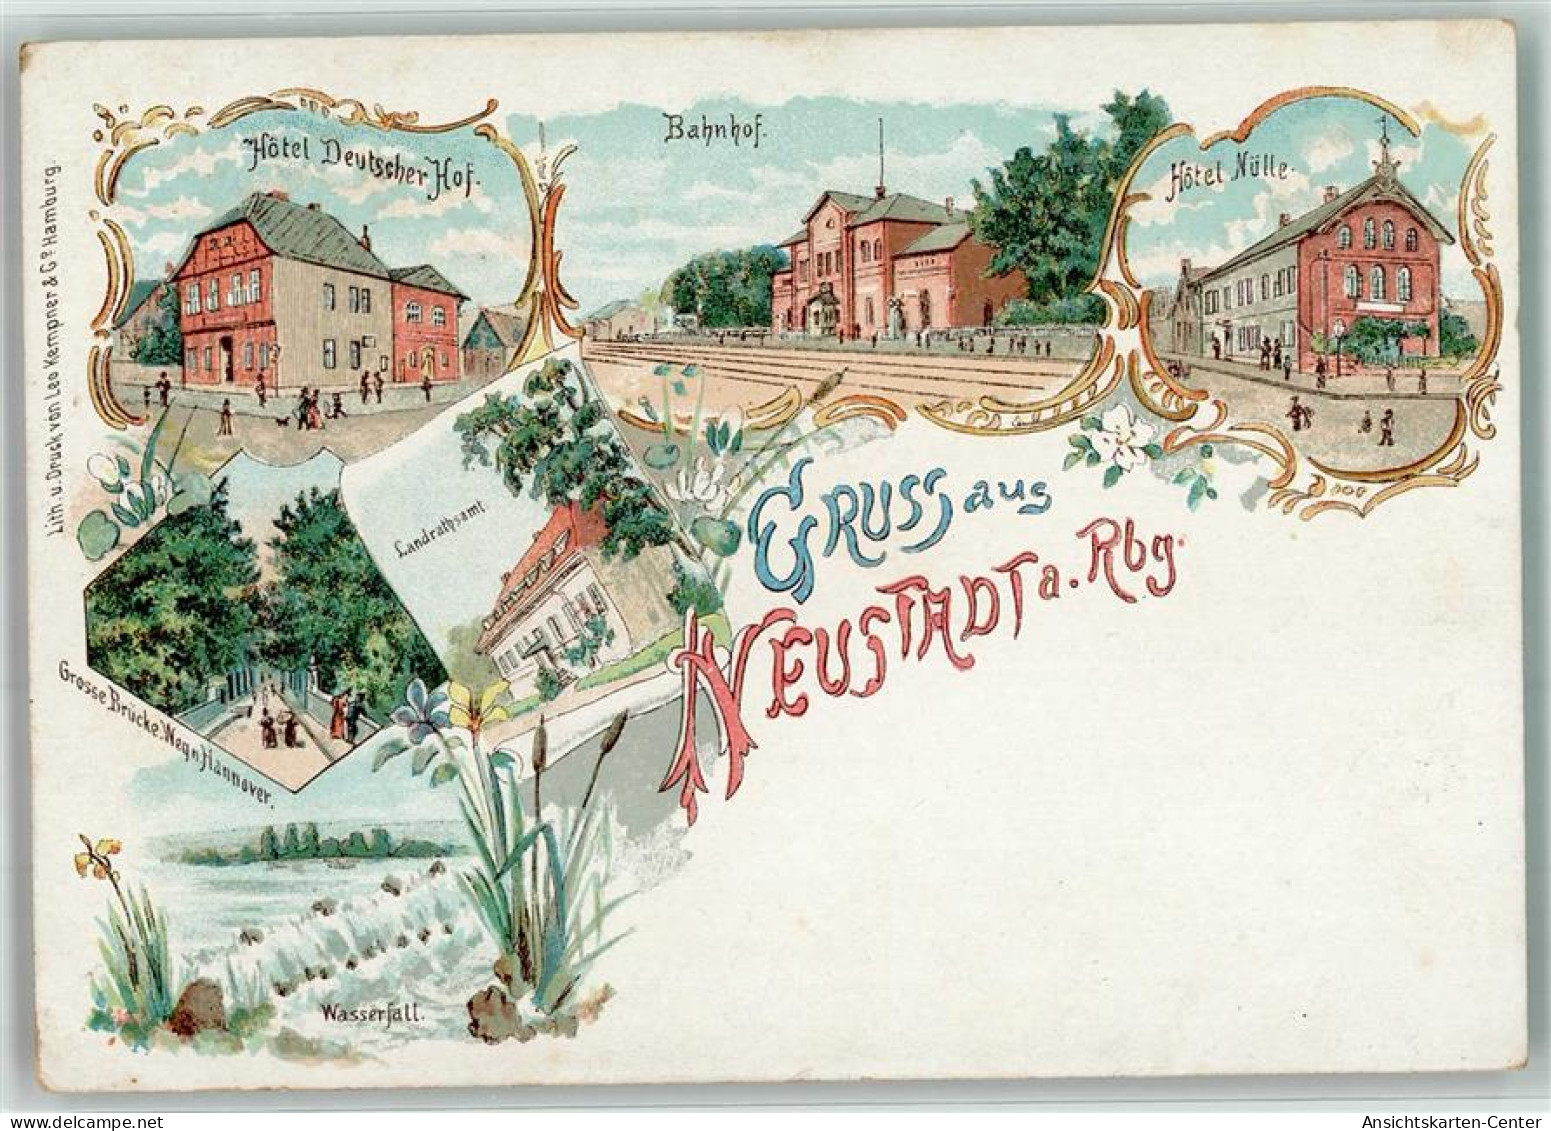 Hôtel Deutscher Hof.
Bahnhof.
Hôtel Nülle.
Lith. u. Druck von Leo Kempner & Co. Hamburg.
Landrathsamt
GRUSS aus
NEUSTADT a. Rbg.
Grosse Brücke. Weg n Hannover.
Wasserfall.
Ansichtskarten-Center